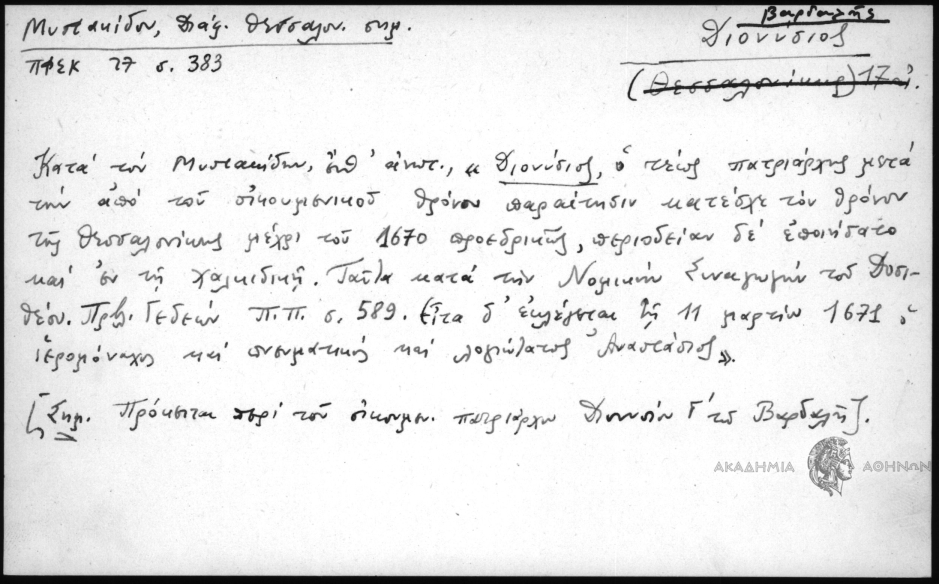 Μυστακίδου, Διάφ. Θεσσαλον. σημ.
ΠΦΣΚ 27 σ. 383
Βαρδαλῆς
Διονύσιος
(Θεσσαλονίκης) 17 αἰ.
Κατά τόν Μυστακίδην, ἔνθ' ἀνωτ., « Διονύσιος, ὁ τέως πατριάρχης μετά
τήν ἀπό τοῦ οἰκουμενικοῦ θρόνου παραίτησιν κατέσχε τόν θρόνον
τῆς Θεσσαλονίκης μέχρι τοῦ 1670 προεδρικῶς, περιοδείαν δέ ἐποιήσατο
καί ἐν τῇ Χαλκιδικῇ. Ταῦτα κατά τήν Νομικήν Συναγωγήν τοῦ Δοσι-
θέου. Πρβλ. Γεδεών Π.Π. σ. 589. Εἶτα δ' ἐκλέγεται τῇ 11 μαρτίου 1671 ὁ
ἱερομόναχος καί πνευματικός καί λογιώτατος Ἀναστάσιος».
[Σημ. Πρόκειται περί τοῦ οἰκουμεν. πατριάρχου Διονυσίου Γ' τοῦ Βαρδαλῆ].
ΑΚΑΔΗΜΙΑ ΑΘΗΝΩΝ